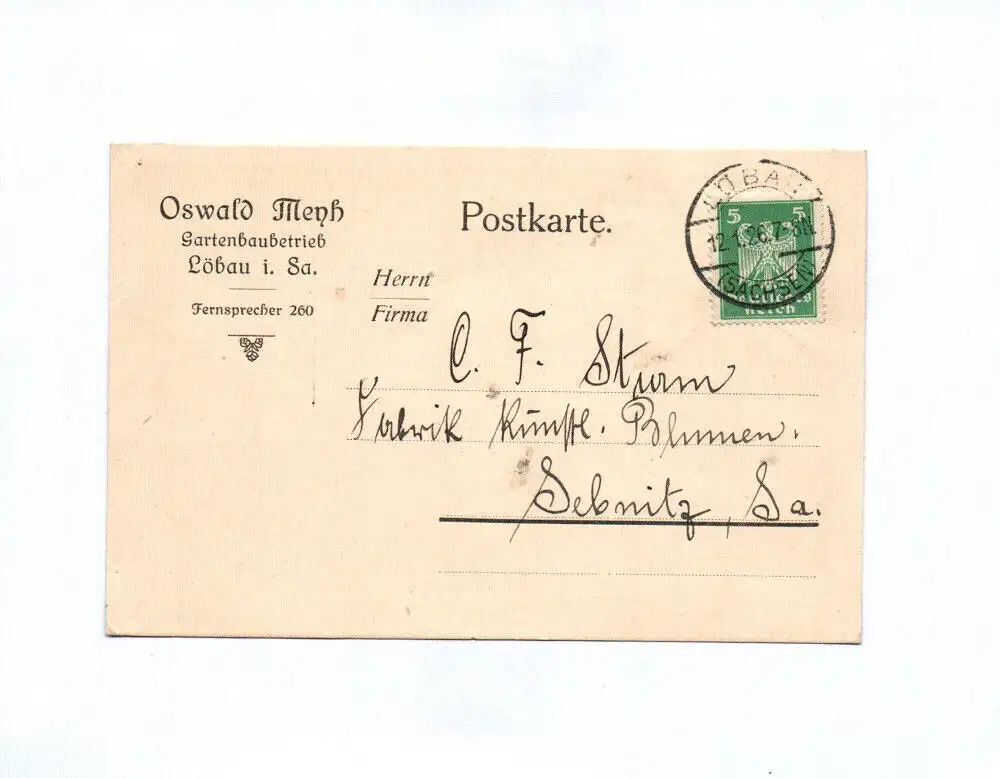 Oswald Meyh
Gartenbaubetrieb
Löbau i. Sa.
Fernsprecher 260
Postkarte.
LÖBAU
5 5
12.1.26.7-8N.
(SACHSEN)
Reich
Herrn
Firma
C. F. Sturm
Fabrik Künstl. Blumen.
Sebnitz, Sa.